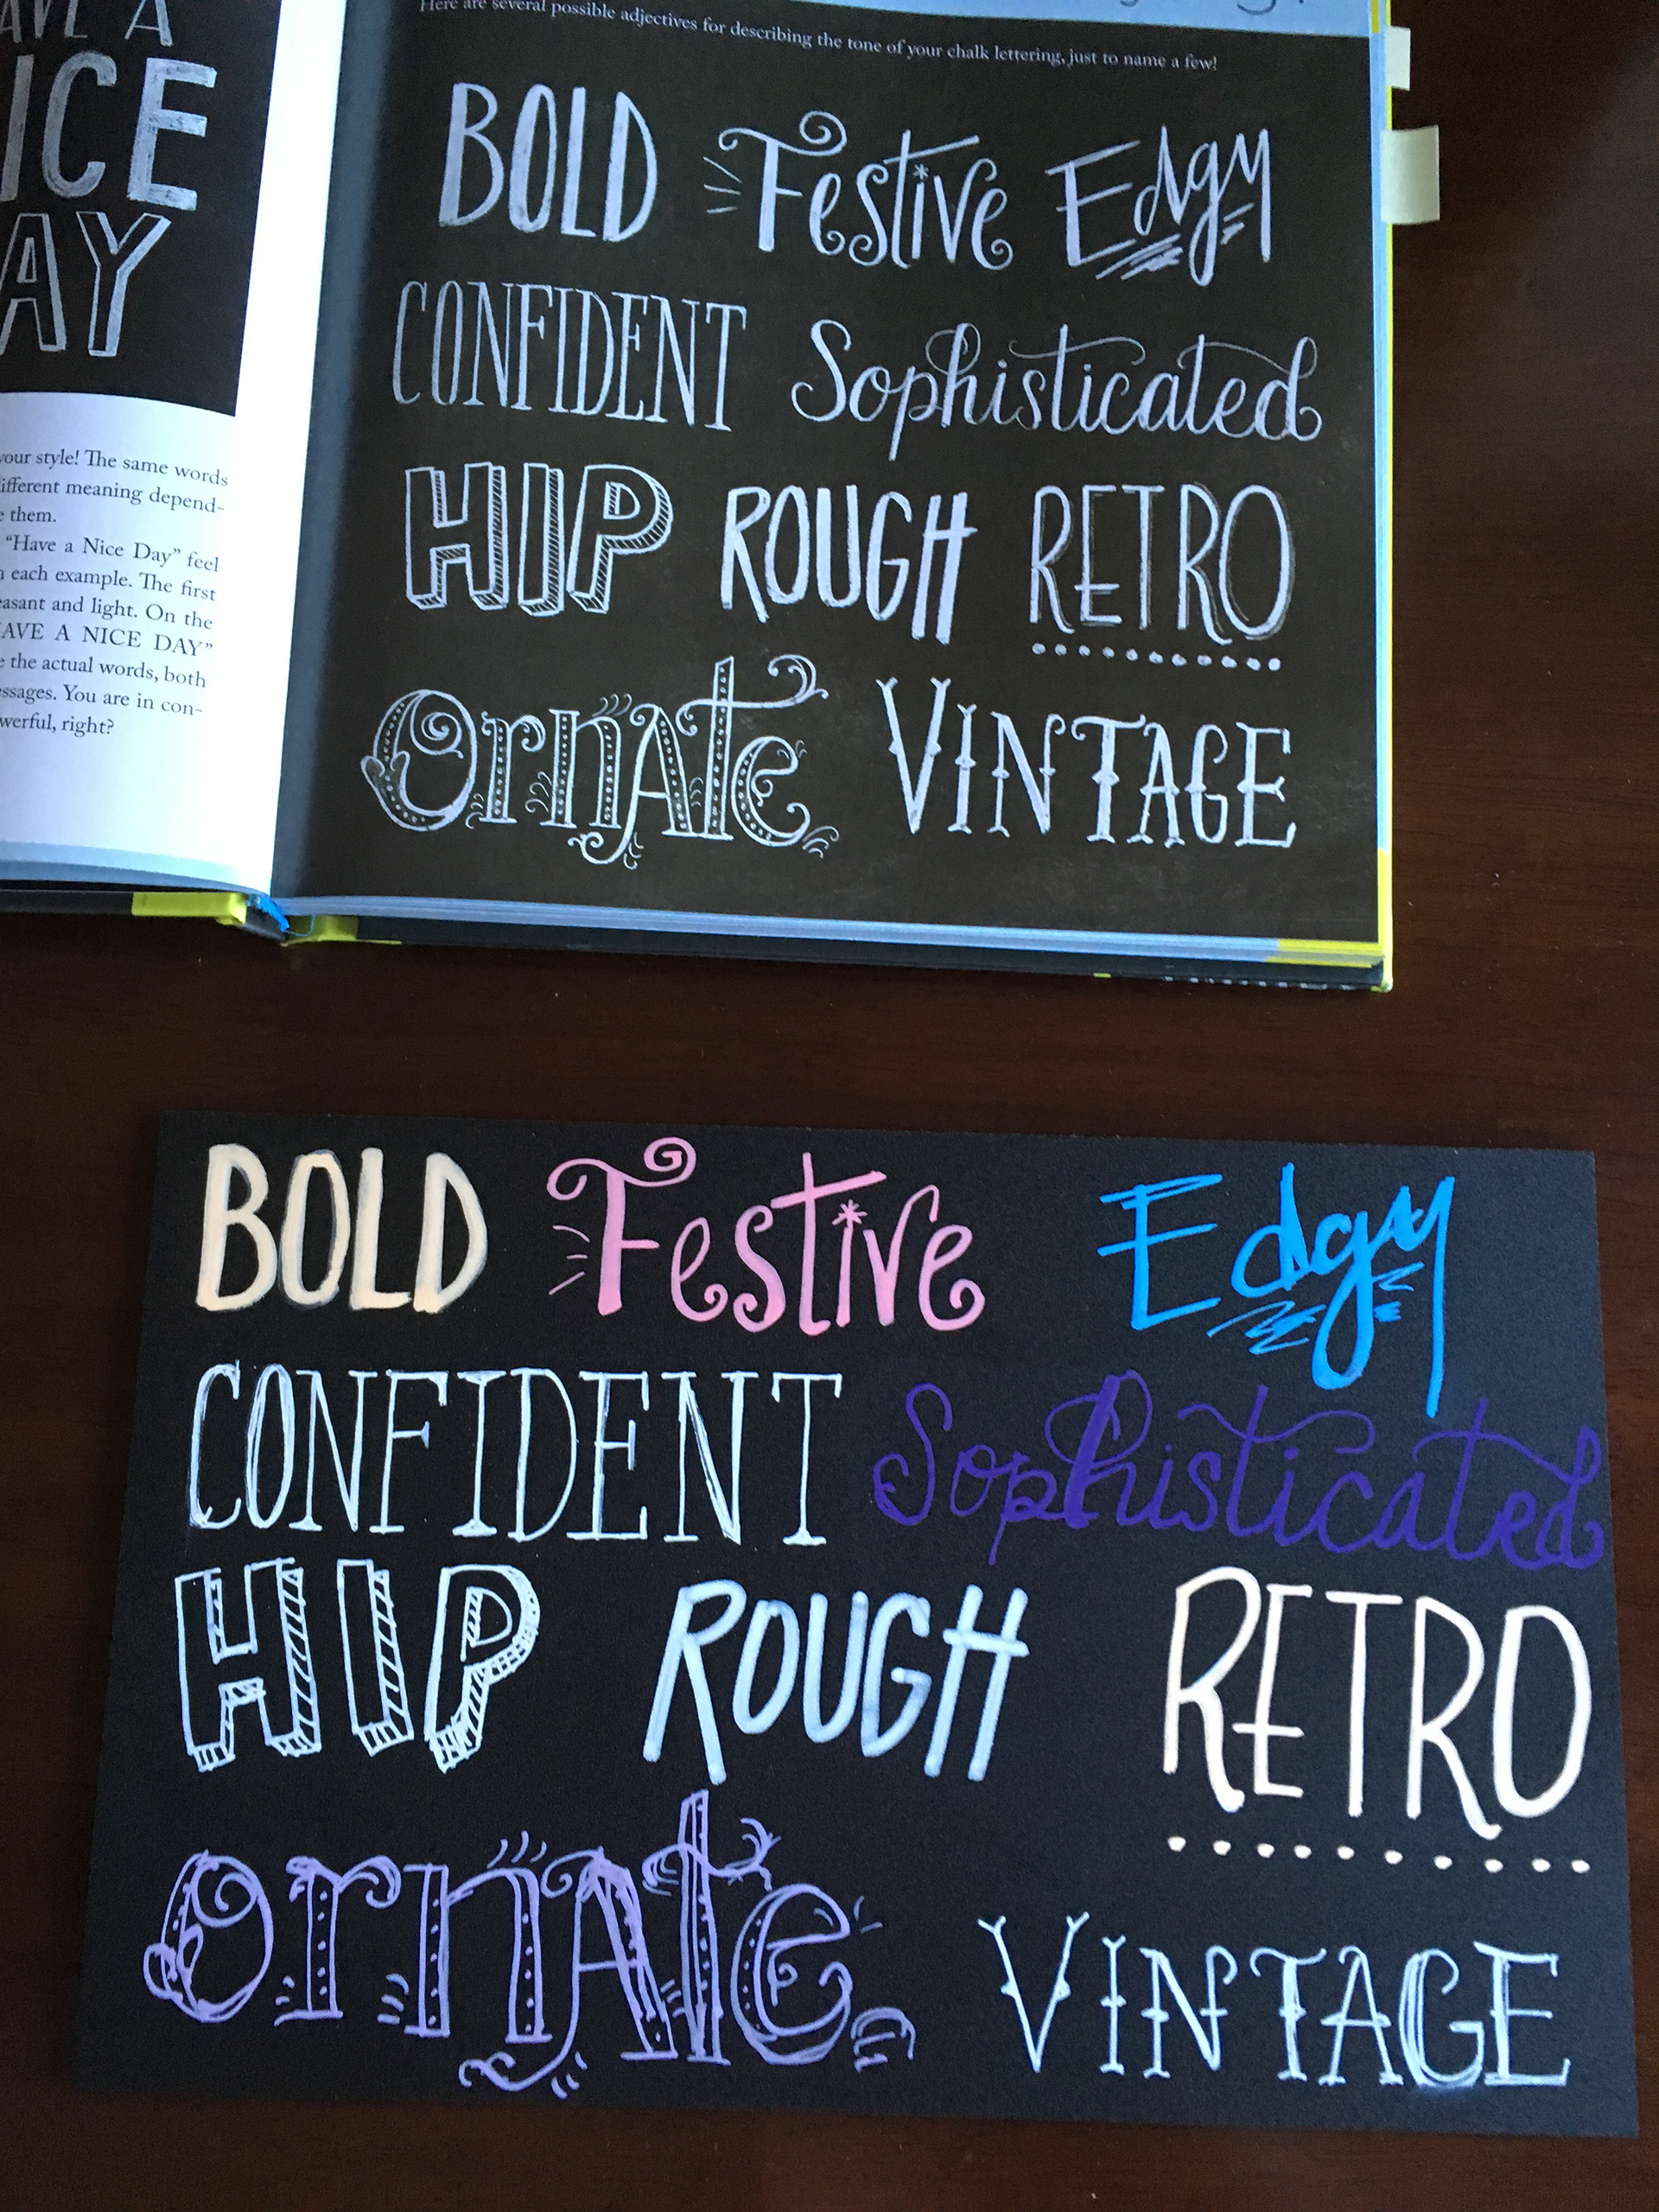 AVE A
ICE
AY
your style! The same words
different meaning depend-
e them.
"Have a Nice Day" feel
each example. The first
easant and light. On the
HAVE A NICE DAY"
e the actual words, both
essages. You are in con-
owerful, right?
Here are several possible adjectives for describing the tone of your chalk lettering, just to name a few!
BOLD Festive Edgy
CONFIDENT Sophisticated
HIP ROUGH RETRO
OrnAte VINTAGE
BOLD Festive Edgy
CONFIDENT Sophisticated
HIP ROUGH RETRO
OrnAte VINTAGE